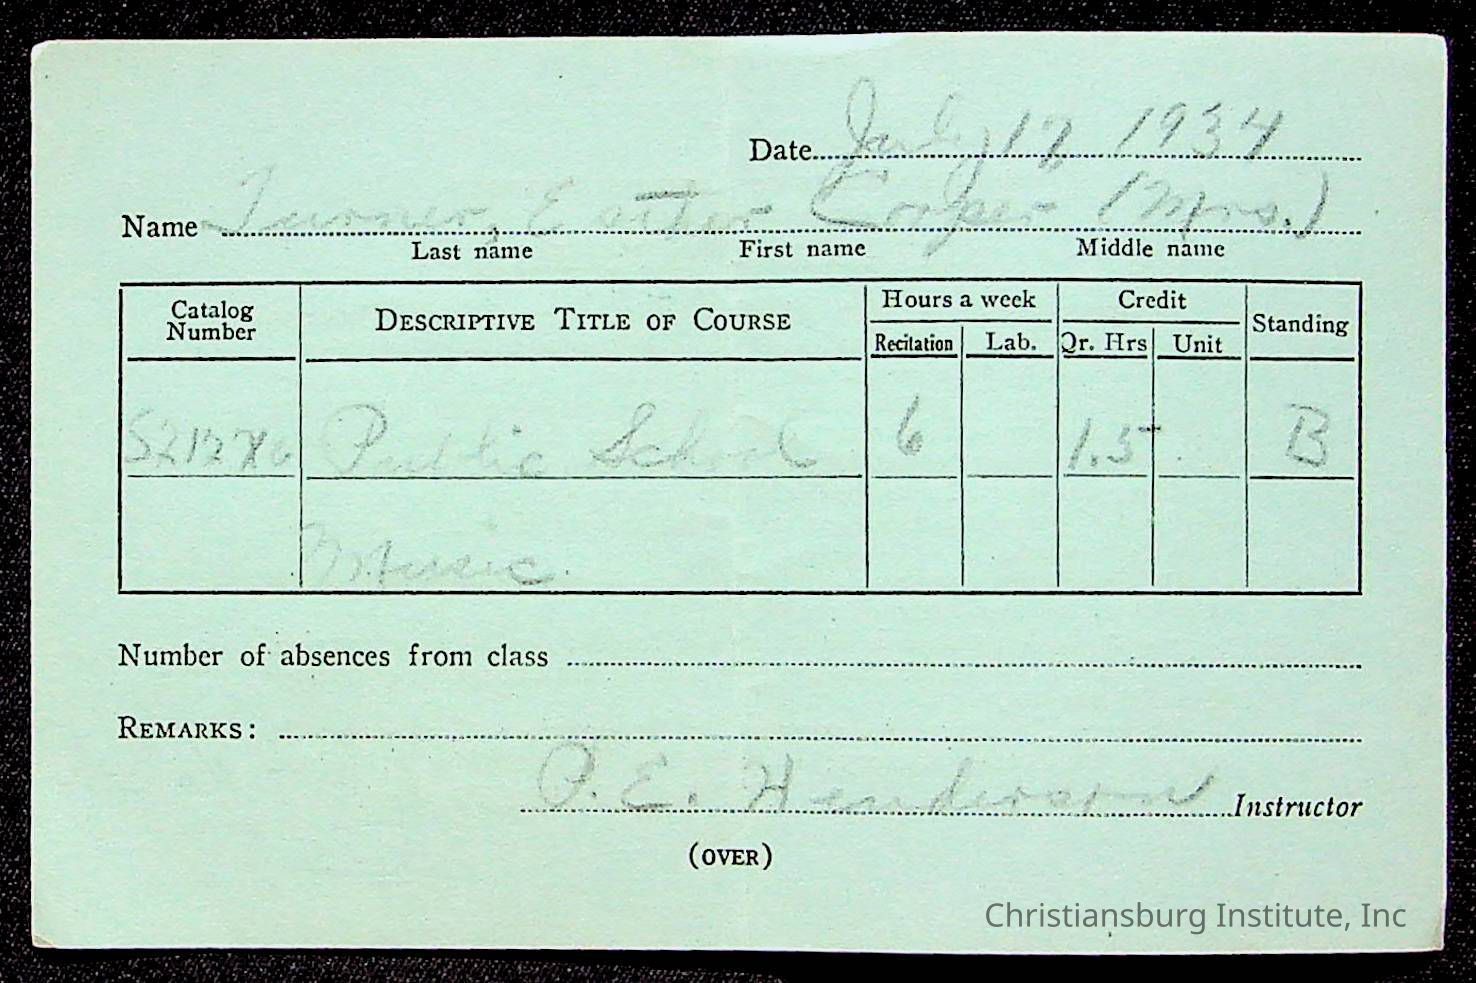 Date July 12 1934
Name Turner, Esther Cooper (Mrs.)
Last name First name Middle name
Catalog Number DESCRIPTIVE TITLE OF COURSE Hours a week Credit Standing
Recitation Lab. Qr. Hrs Unit
Public School 6 1.5 B
Music.
Number of absences from class
REMARKS:
P. E. Henderson Instructor
(OVER)
Christiansburg Institute, Inc